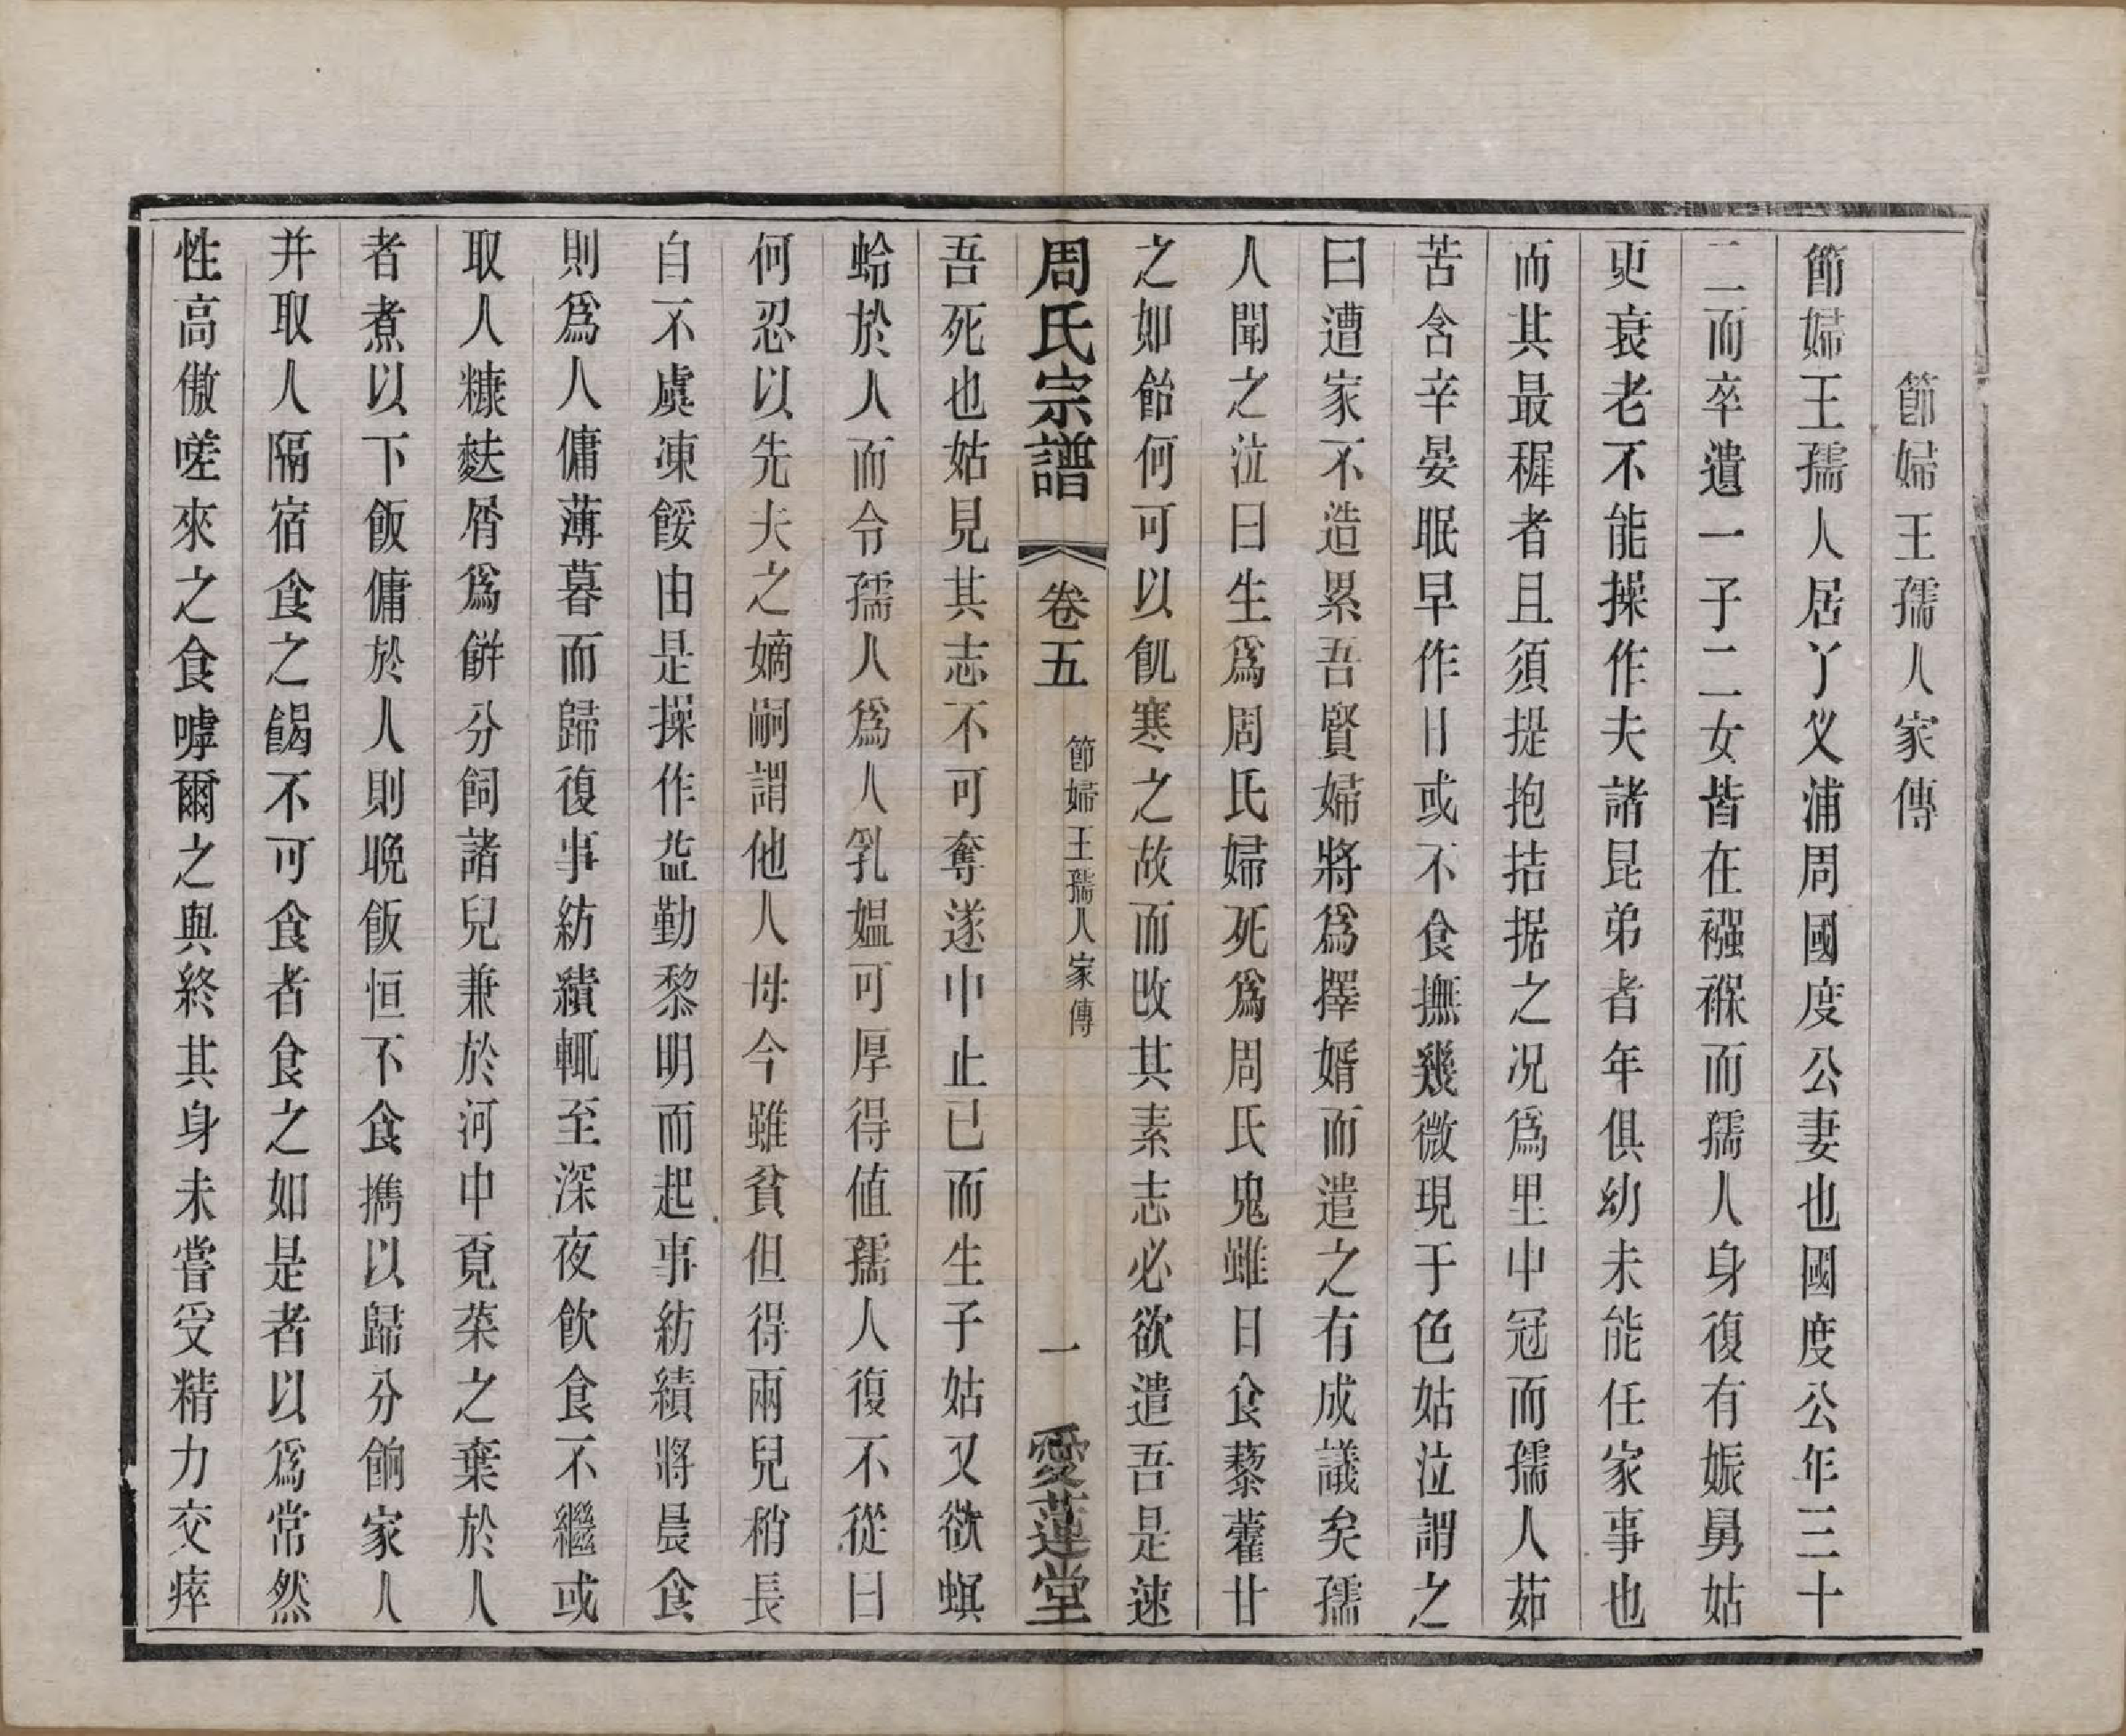 節婦王孺人家傳
節婦王孺人居丫义浦周國度公妻也國度公年三十
二而卒遺一子二女皆在襁褓而孺人身復有娠舅姑
更衰老不能操作夫諸昆弟者年俱幼未能任家事也
而其最穉者且須提抱拮据之况爲里中冠而孺人茹
苦含辛晏眠早作日或不食撫幾微現于色姑泣謂之
曰遭家不造累吾賢婦將爲擇婿而遣之有成議矣孺
人聞之泣曰生爲周氏婦死爲周氏鬼雖日食藜藿甘
之如飴何可以飢寒之故而改其素志必欲遣吾是速
周氏宗譜 卷五 節婦王孺人家傳 一 愛蓮堂
吾死也姑見其志不可奪遂中止已而生子姑又欲螟
蛉於人而令孺人爲人乳媼可厚得值孺人復不從曰
何忍以先夫之嫡嗣謂他人母今雖貧但得兩兒稍長
自不虞凍餒由是操作益勤黎明而起事紡績將晨食
則爲人傭薄暮而歸復事紡績輒至深夜飲食不繼或
取人糠麩屑爲餅分飼諸兒兼於河中覓菜之棄於人
者煮以下飯傭於人則晚飯恒不食擕以歸分餉家人
并取人隔宿食之餲不可食者食之如是者以爲常然
性高傲嗟來之食嘑爾之與終其身未嘗受精力交瘁